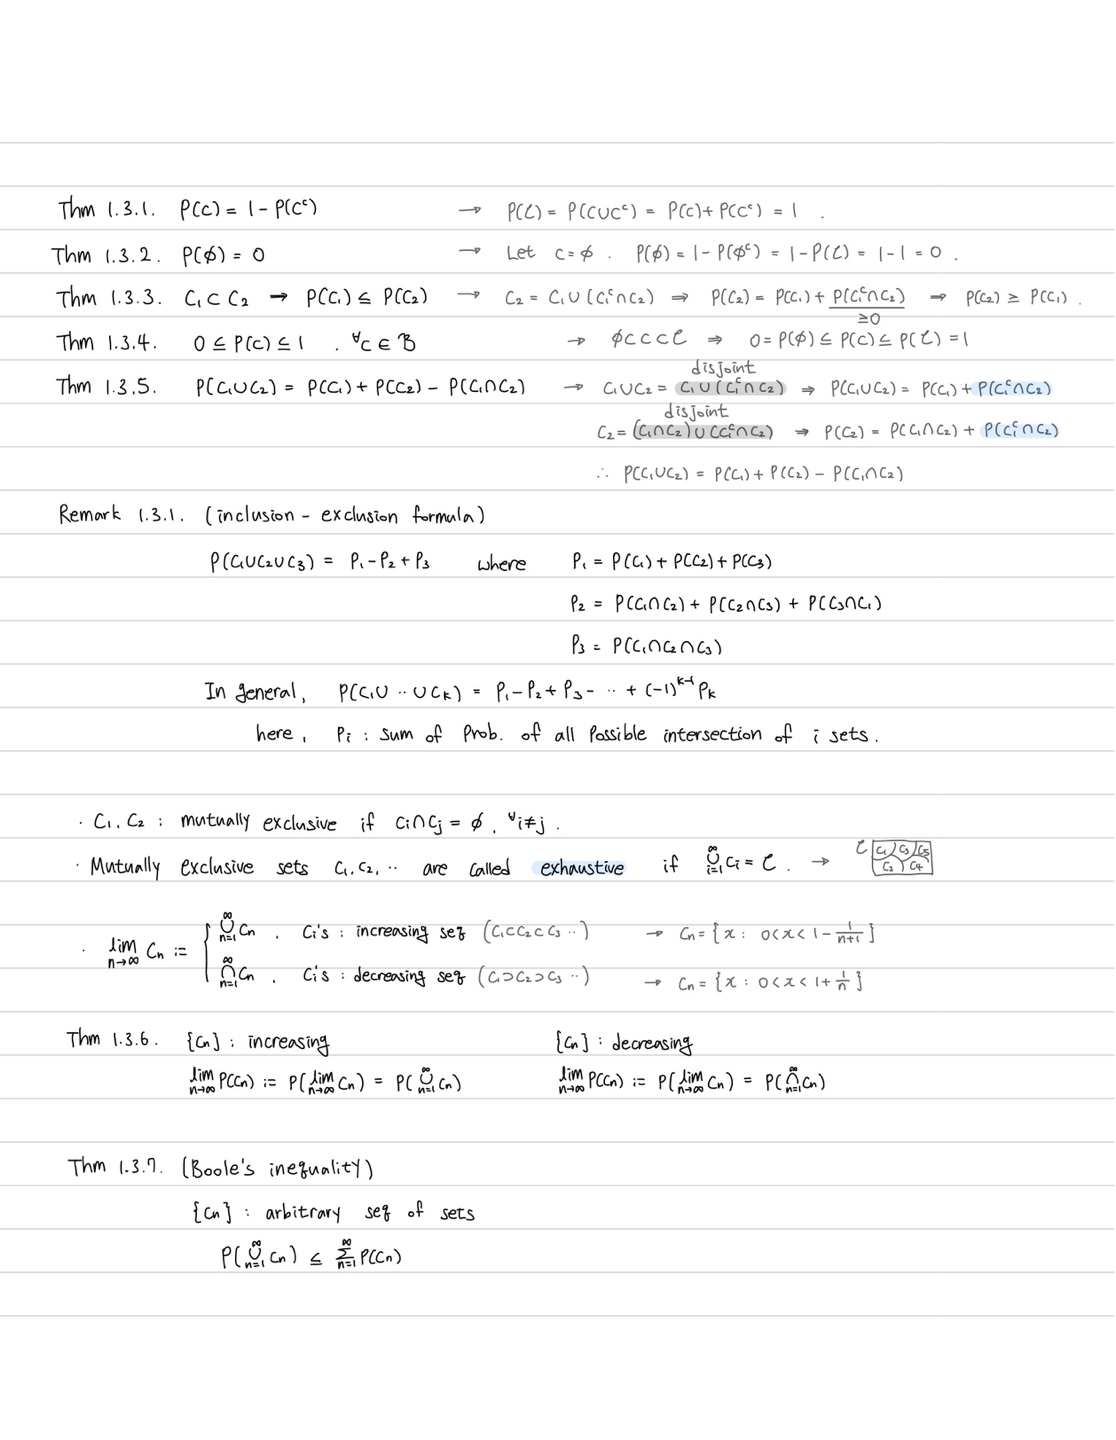 Thm 1.3.1. P(C) = 1 - P(Cᶜ) → P(𝒞) = P(C∪Cᶜ) = P(C) + P(Cᶜ) = 1 .
Thm 1.3.2. P(∅) = 0 → Let C = ∅ . P(∅) = 1 - P(∅ᶜ) = 1 - P(𝒞) = 1 - 1 = 0 .
Thm 1.3.3. C₁ ⊂ C₂ → P(C₁) ≤ P(C₂) → C₂ = C₁∪(C₁ᶜ∩C₂) ⇒ P(C₂) = P(C₁) + P(C₁ᶜ∩C₂) ⇒ P(C₂) ≥ P(C₁) .
≥0
Thm 1.3.4. 0 ≤ P(C) ≤ 1 . ∀C ∈ B → ∅⊂C⊂𝒞 ⇒ 0 = P(∅) ≤ P(C) ≤ P(𝒞) = 1
disjoint
Thm 1.3.5. P(C₁∪C₂) = P(C₁) + P(C₂) - P(C₁∩C₂) → C₁∪C₂ = C₁∪(C₁ᶜ∩C₂) ⇒ P(C₁∪C₂) = P(C₁) + P(C₁ᶜ∩C₂)
disjoint
C₂ = (C₁∩C₂)∪(C₁ᶜ∩C₂) ⇒ P(C₂) = P(C₁∩C₂) + P(C₁ᶜ∩C₂)
∴ P(C₁∪C₂) = P(C₁) + P(C₂) - P(C₁∩C₂)
Remark 1.3.1. (inclusion - exclusion formula)
P(C₁∪C₂∪C₃) = P₁ - P₂ + P₃ where P₁ = P(C₁) + P(C₂) + P(C₃)
P₂ = P(C₁∩C₂) + P(C₂∩C₃) + P(C₃∩C₁)
P₃ = P(C₁∩C₂∩C₃)
In general, P(C₁∪ ·· ∪Cₖ) = P₁ - P₂ + P₃ - ·· + (-1)ᵏ⁻¹ Pₖ
here, Pᵢ : sum of Prob. of all Possible intersection of i sets .
· C₁, C₂ : mutually exclusive if Cᵢ∩Cⱼ = ∅, ∀i≠j .
· Mutually exclusive sets C₁, C₂, ·· are called exhaustive if ∞∪i=1 Cᵢ = 𝒞 . → 𝒞 C₁ C₃ C₅ C₂ C₄
∞∪n=1 Cn , Cᵢ's : increasing seq (C₁⊂C₂⊂C₃ ··) → Cn = {x : 0<x<1-1/(n+1)}
· lim n→∞ Cn :=
∞∩n=1 Cn , Cᵢ's : decreasing seq (C₁⊃C₂⊃C₃ ··) → Cn = {x : 0<x<1+1/n}
Thm 1.3.6. {Cn} : increasing {Cn} : decreasing
lim n→∞ P(Cn) := P(lim n→∞ Cn) = P(∞∪n=1 Cn) lim n→∞ P(Cn) := P(lim n→∞ Cn) = P(∞∩n=1 Cn)
Thm 1.3.7. (Boole's inequality)
{Cn} : arbitrary seq of sets
P(∞∪n=1 Cn) ≤ ∞∑n=1 P(Cn)